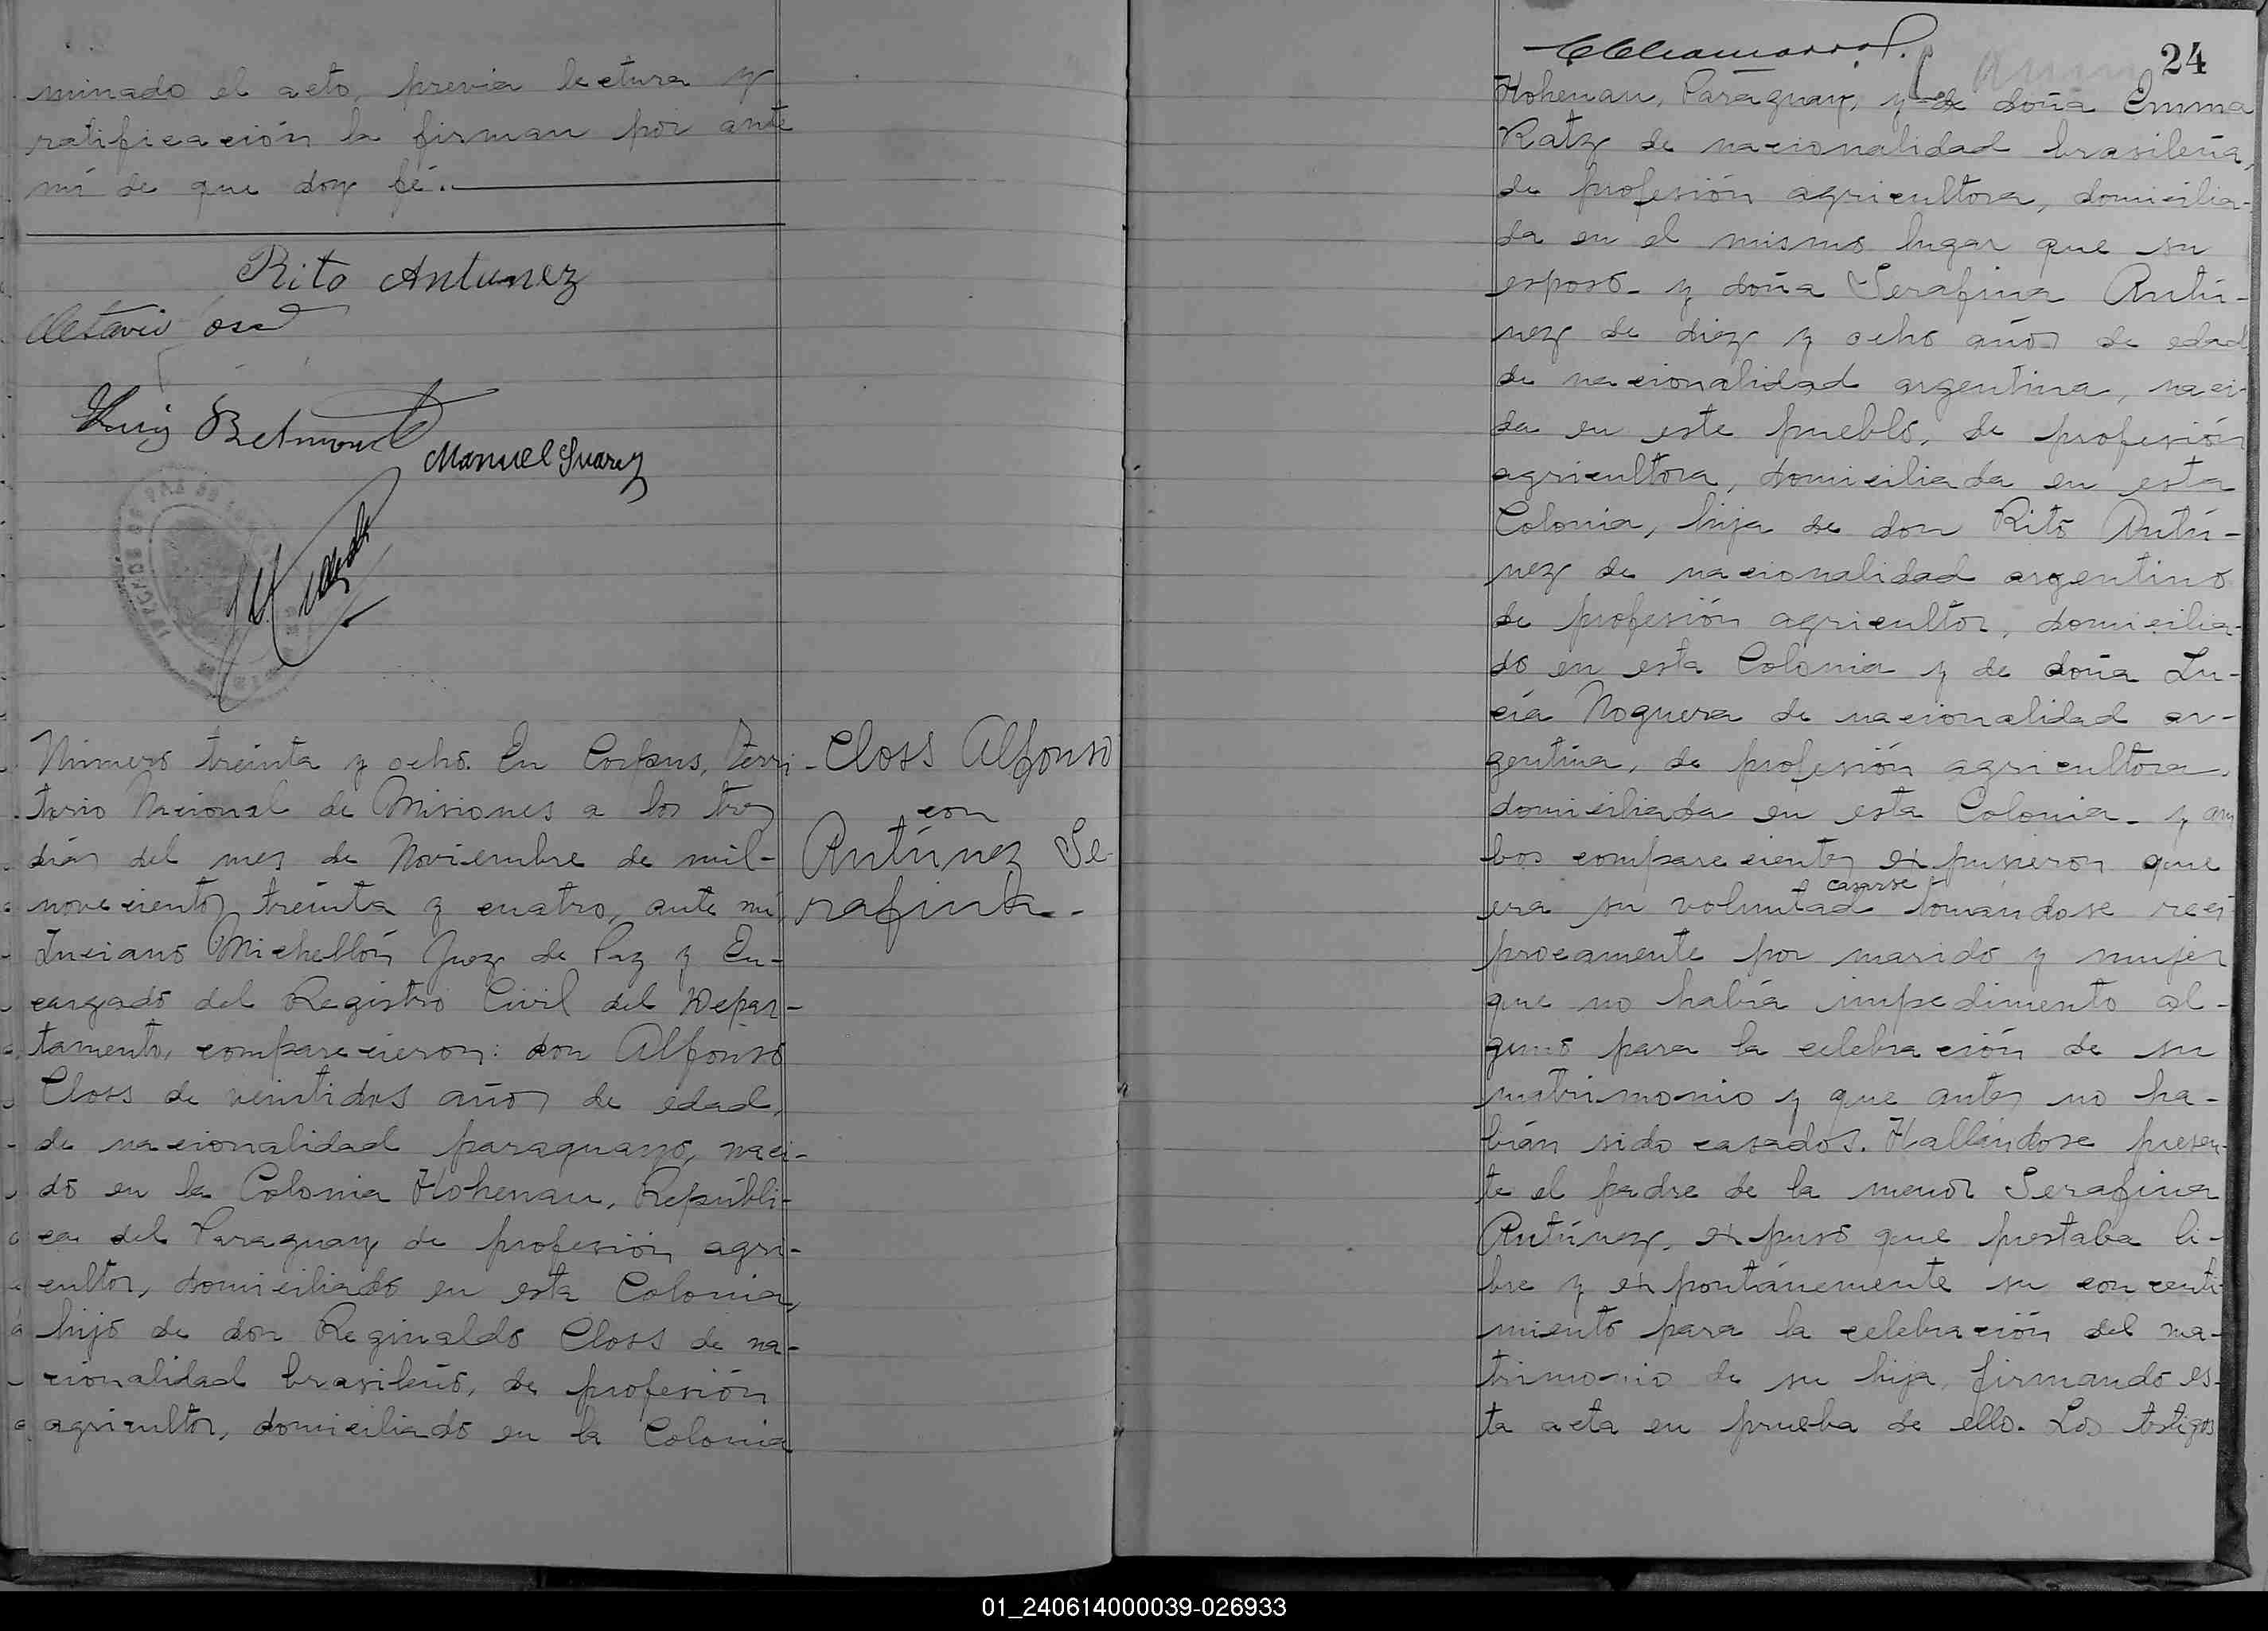 minado el acto, previa lectura y
ratificación la firman por ante
mi de que doy fé.
Rito Antunez
Octavio
Luis
Manuel Suarez
Número treinta y ocho. En Corpus, Terri-
torio Nacional de Misiones a los tres
días del mes de Noviembre de mil-
novecientos treinta y cuatro, ante mí,
Luciano Michellón Juez de Paz y En-
cargado del Registro Civil del Depar-
tamento, comparecieron: don Alfonso
Closs de veintidos años de edad,
de nacionalidad paraguayo, naci-
do en la Colonia Hohenau, Repúbli-
ca del Paraguay de profesión agri-
cultor, domiciliado en esta Colonia,
hijo de don Reginaldo Closs de na-
cionalidad brasileño, de profesión
agricultor, domiciliado en la Colonia
Closs Alfonso
con
Antúnez Se-
rafina.-
24
Hohenau, Paraguay, y de doña Emma
Ratz de nacionalidad brasileña,
de profesión agricultora, domicilia-
da en el mismo lugar que su
esposo- y doña Serafina Antú-
nez de diez y ocho años de edad
de nacionalidad argentina, naci-
da en este pueblo, de profesión
agricultora, domiciliada en esta
Colonia, hija de don Rito Antú-
nez de nacionalidad argentino
de profesión agricultor, domicilia-
do en esta Colonia y de doña Lu-
cía Noguera de nacionalidad ar-
gentina, de profesión agricultora,
domiciliada en esta Colonia- y am
bos comparecientes expusieron que
era su voluntad casarse tomándose reci
procamente por marido y mujer
que no había impedimento al-
guno para la celebración de su
matrimonio y que antes no ha-
bían sido casados. Hallándose presen-
te el padre de la menor Serafina
Antúnez, expuso que prestaba li-
bre y expontánemente su concenti-
miento para la celebración del ma-
trimonio de su hija, firmando es-
ta acta en prueba de ello. Los testigos
01_240614000039-026933